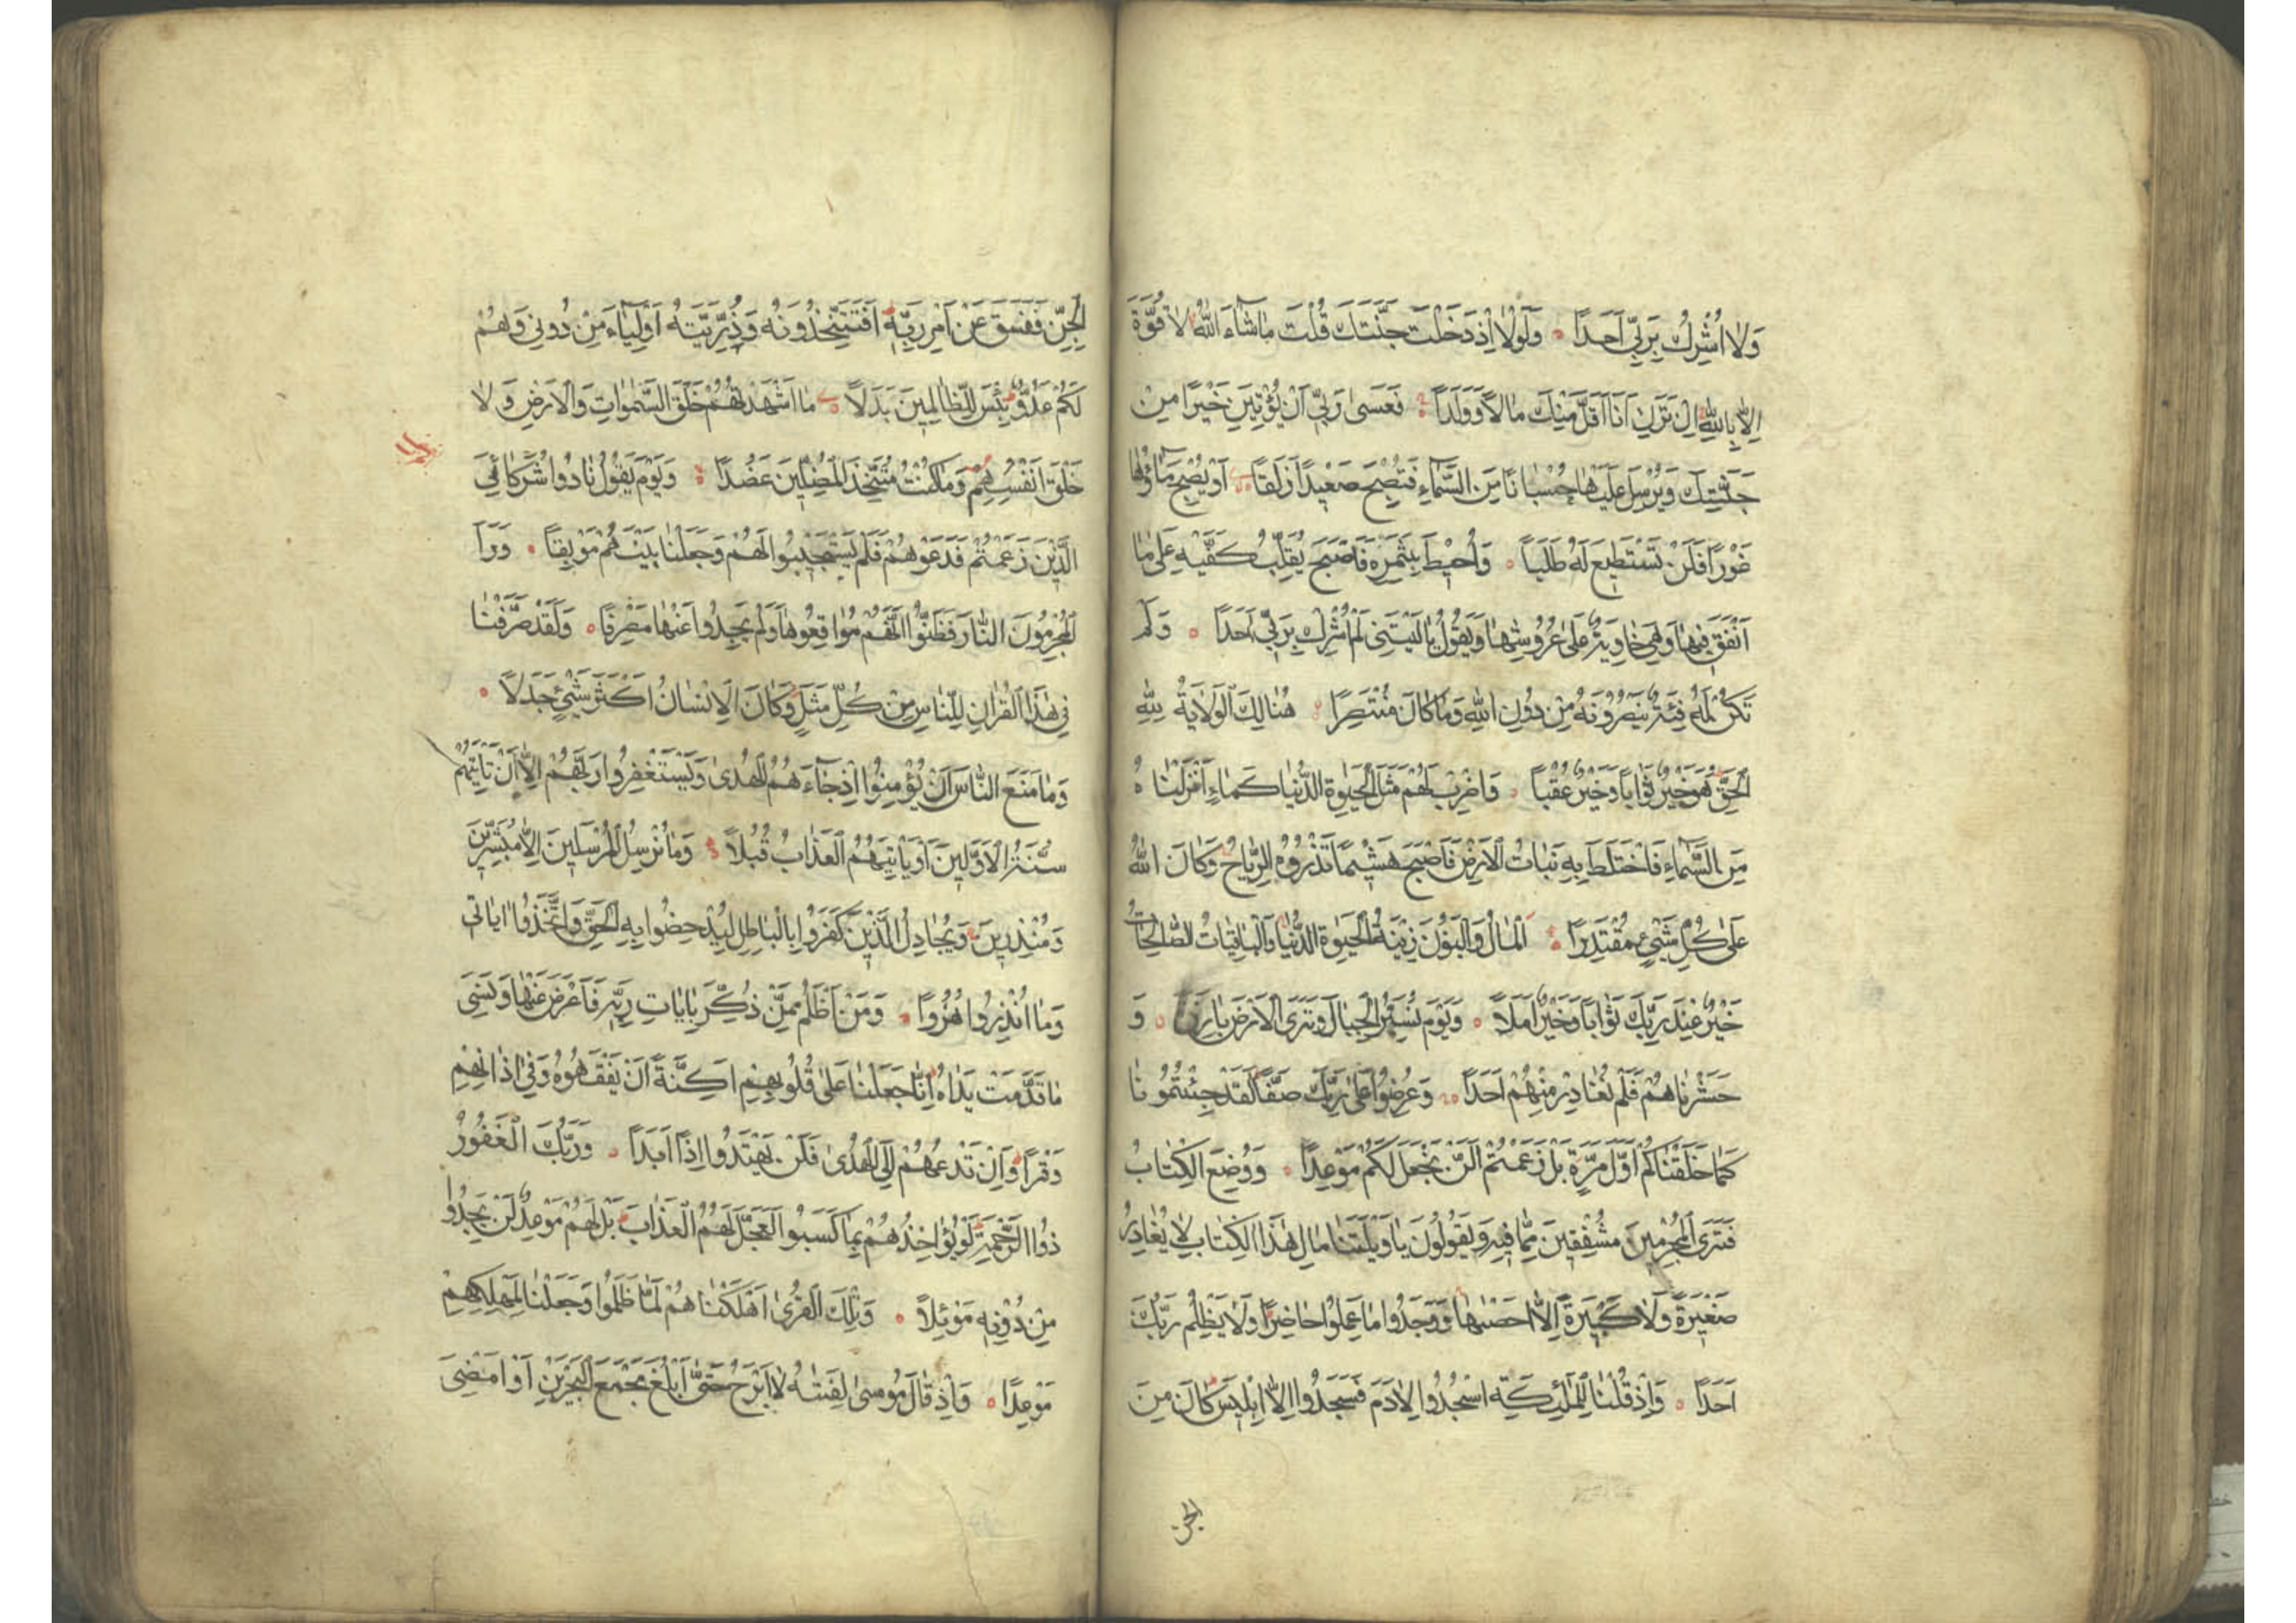 وَلَا اُشْرِكُ بِرَبِّي اَحَدًا وَلَوْلَا اِذْ دَخَلْتَ جَنَّتَكَ قُلْتَ مَا شَاءَ اللهُ لَا قُوَّةَ
اِلَّا بِاللهِ اِنْ تَرَنِ اَنَا اَقَلَّ مِنْكَ مَالًا وَوَلَدًا فَعَسَى رَبِّي اَنْ يُؤْتِيَنِ خَيْرًا مِنْ
جَنَّتِكَ وَيُرْسِلَ عَلَيْهَا حُسْبَانًا مِنَ السَّمَاءِ فَتُصْبِحَ صَعِيدًا زَلَقًا اَوْ يُصْبِحَ مَاؤُهَا
غَوْرًا فَلَنْ تَسْتَطِيعَ لَهُ طَلَبًا وَاُحِيطَ بِثَمَرِهِ فَاَصْبَحَ يُقَلِّبُ كَفَّيْهِ عَلَى مَا
اَنْفَقَ فِيهَا وَهِيَ خَاوِيَةٌ عَلَى عُرُوشِهَا وَيَقُولُ يَا لَيْتَنِي لَمْ اُشْرِكْ بِرَبِّي اَحَدًا وَلَمْ
تَكُنْ لَهُ فِئَةٌ يَنْصُرُونَهُ مِنْ دُونِ اللهِ وَمَا كَانَ مُنْتَصِرًا هُنَالِكَ الْوَلَايَةُ لِلّٰهِ
الْحَقِّ هُوَ خَيْرٌ ثَوَابًا وَخَيْرٌ عُقْبًا وَاضْرِبْ لَهُمْ مَثَلَ الْحَيٰوةِ الدُّنْيَا كَمَاءٍ اَنْزَلْنَاهُ
مِنَ السَّمَاءِ فَاخْتَلَطَ بِهِ نَبَاتُ الْاَرْضِ فَاَصْبَحَ هَشِيمًا تَذْرُوهُ الرِّيَاحُ وَكَانَ اللهُ
عَلَى كُلِّ شَيْءٍ مُقْتَدِرًا اَلْمَالُ وَالْبَنُونَ زِينَةُ الْحَيٰوةِ الدُّنْيَا وَالْبَاقِيَاتُ الصَّالِحَاتُ
خَيْرٌ عِنْدَ رَبِّكَ ثَوَابًا وَخَيْرٌ اَمَلًا وَيَوْمَ نُسَيِّرُ الْجِبَالَ وَتَرَى الْاَرْضَ بَارِزَةً وَ
حَشَرْنَاهُمْ فَلَمْ نُغَادِرْ مِنْهُمْ اَحَدًا وَعُرِضُوا عَلَى رَبِّكَ صَفًّا لَقَدْ جِئْتُمُونَا
كَمَا خَلَقْنَاكُمْ اَوَّلَ مَرَّةٍ بَلْ زَعَمْتُمْ اَلَّنْ نَجْعَلَ لَكُمْ مَوْعِدًا وَوُضِعَ الْكِتَابُ
فَتَرَى الْمُجْرِمِينَ مُشْفِقِينَ مِمَّا فِيهِ وَيَقُولُونَ يَا وَيْلَتَنَا مَالِ هٰذَا الْكِتَابِ لَا يُغَادِرُ
صَغِيرَةً وَلَا كَبِيرَةً اِلَّا اَحْصٰيهَا وَوَجَدُوا مَا عَمِلُوا حَاضِرًا وَلَا يَظْلِمُ رَبُّكَ
اَحَدًا وَاِذْ قُلْنَا لِلْمَلٰئِكَةِ اسْجُدُوا لِاٰدَمَ فَسَجَدُوا اِلَّا اِبْلِيسَ كَانَ مِنَ
الجن
الْجِنِّ فَفَسَقَ عَنْ اَمْرِ رَبِّهِ اَفَتَتَّخِذُونَهُ وَذُرِّيَّتَهُ اَوْلِيَاءَ مِنْ دُونِي وَهُمْ
لَكُمْ عَدُوٌّ بِئْسَ لِلظَّالِمِينَ بَدَلًا مَا اَشْهَدْتُهُمْ خَلْقَ السَّمٰوَاتِ وَالْاَرْضِ وَلَا
خَلْقَ اَنْفُسِهِمْ وَمَا كُنْتُ مُتَّخِذَ الْمُضِلِّينَ عَضُدًا وَيَوْمَ يَقُولُ نَادُوا شُرَكَائِيَ
الَّذِينَ زَعَمْتُمْ فَدَعَوْهُمْ فَلَمْ يَسْتَجِيبُوا لَهُمْ وَجَعَلْنَا بَيْنَهُمْ مَوْبِقًا وَرَاَ
الْمُجْرِمُونَ النَّارَ فَظَنُّوا اَنَّهُمْ مُوَاقِعُوهَا وَلَمْ يَجِدُوا عَنْهَا مَصْرِفًا وَلَقَدْ صَرَّفْنَا
فِي هٰذَا الْقُرْاٰنِ لِلنَّاسِ مِنْ كُلِّ مَثَلٍ وَكَانَ الْاِنْسَانُ اَكْثَرَ شَيْءٍ جَدَلًا
وَمَا مَنَعَ النَّاسَ اَنْ يُؤْمِنُوا اِذْ جَاءَهُمُ الْهُدَى وَيَسْتَغْفِرُوا رَبَّهُمْ اِلَّا اَنْ تَاْتِيَهُمْ
سُنَّةُ الْاَوَّلِينَ اَوْ يَاْتِيَهُمُ الْعَذَابُ قُبُلًا وَمَا نُرْسِلُ الْمُرْسَلِينَ اِلَّا مُبَشِّرِينَ
وَمُنْذِرِينَ وَيُجَادِلُ الَّذِينَ كَفَرُوا بِالْبَاطِلِ لِيُدْحِضُوا بِهِ الْحَقَّ وَاتَّخَذُوا اٰيَاتِي
وَمَا اُنْذِرُوا هُزُوًا وَمَنْ اَظْلَمُ مِمَّنْ ذُكِّرَ بِاٰيَاتِ رَبِّهِ فَاَعْرَضَ عَنْهَا وَنَسِيَ
مَا قَدَّمَتْ يَدَاهُ اِنَّا جَعَلْنَا عَلَى قُلُوبِهِمْ اَكِنَّةً اَنْ يَفْقَهُوهُ وَفِي اٰذَانِهِمْ
وَقْرًا وَاِنْ تَدْعُهُمْ اِلَى الْهُدَى فَلَنْ يَهْتَدُوا اِذًا اَبَدًا وَرَبُّكَ الْغَفُورُ
ذُو الرَّحْمَةِ لَوْ يُؤَاخِذُهُمْ بِمَا كَسَبُوا لَعَجَّلَ لَهُمُ الْعَذَابَ بَلْ لَهُمْ مَوْعِدٌ لَنْ يَجِدُوا
مِنْ دُونِهِ مَوْئِلًا وَتِلْكَ الْقُرَى اَهْلَكْنَاهُمْ لَمَّا ظَلَمُوا وَجَعَلْنَا لِمَهْلِكِهِمْ
مَوْعِدًا وَاِذْ قَالَ مُوسَى لِفَتٰيهُ لَا اَبْرَحُ حَتَّى اَبْلُغَ مَجْمَعَ الْبَحْرَيْنِ اَوْ اَمْضِيَ